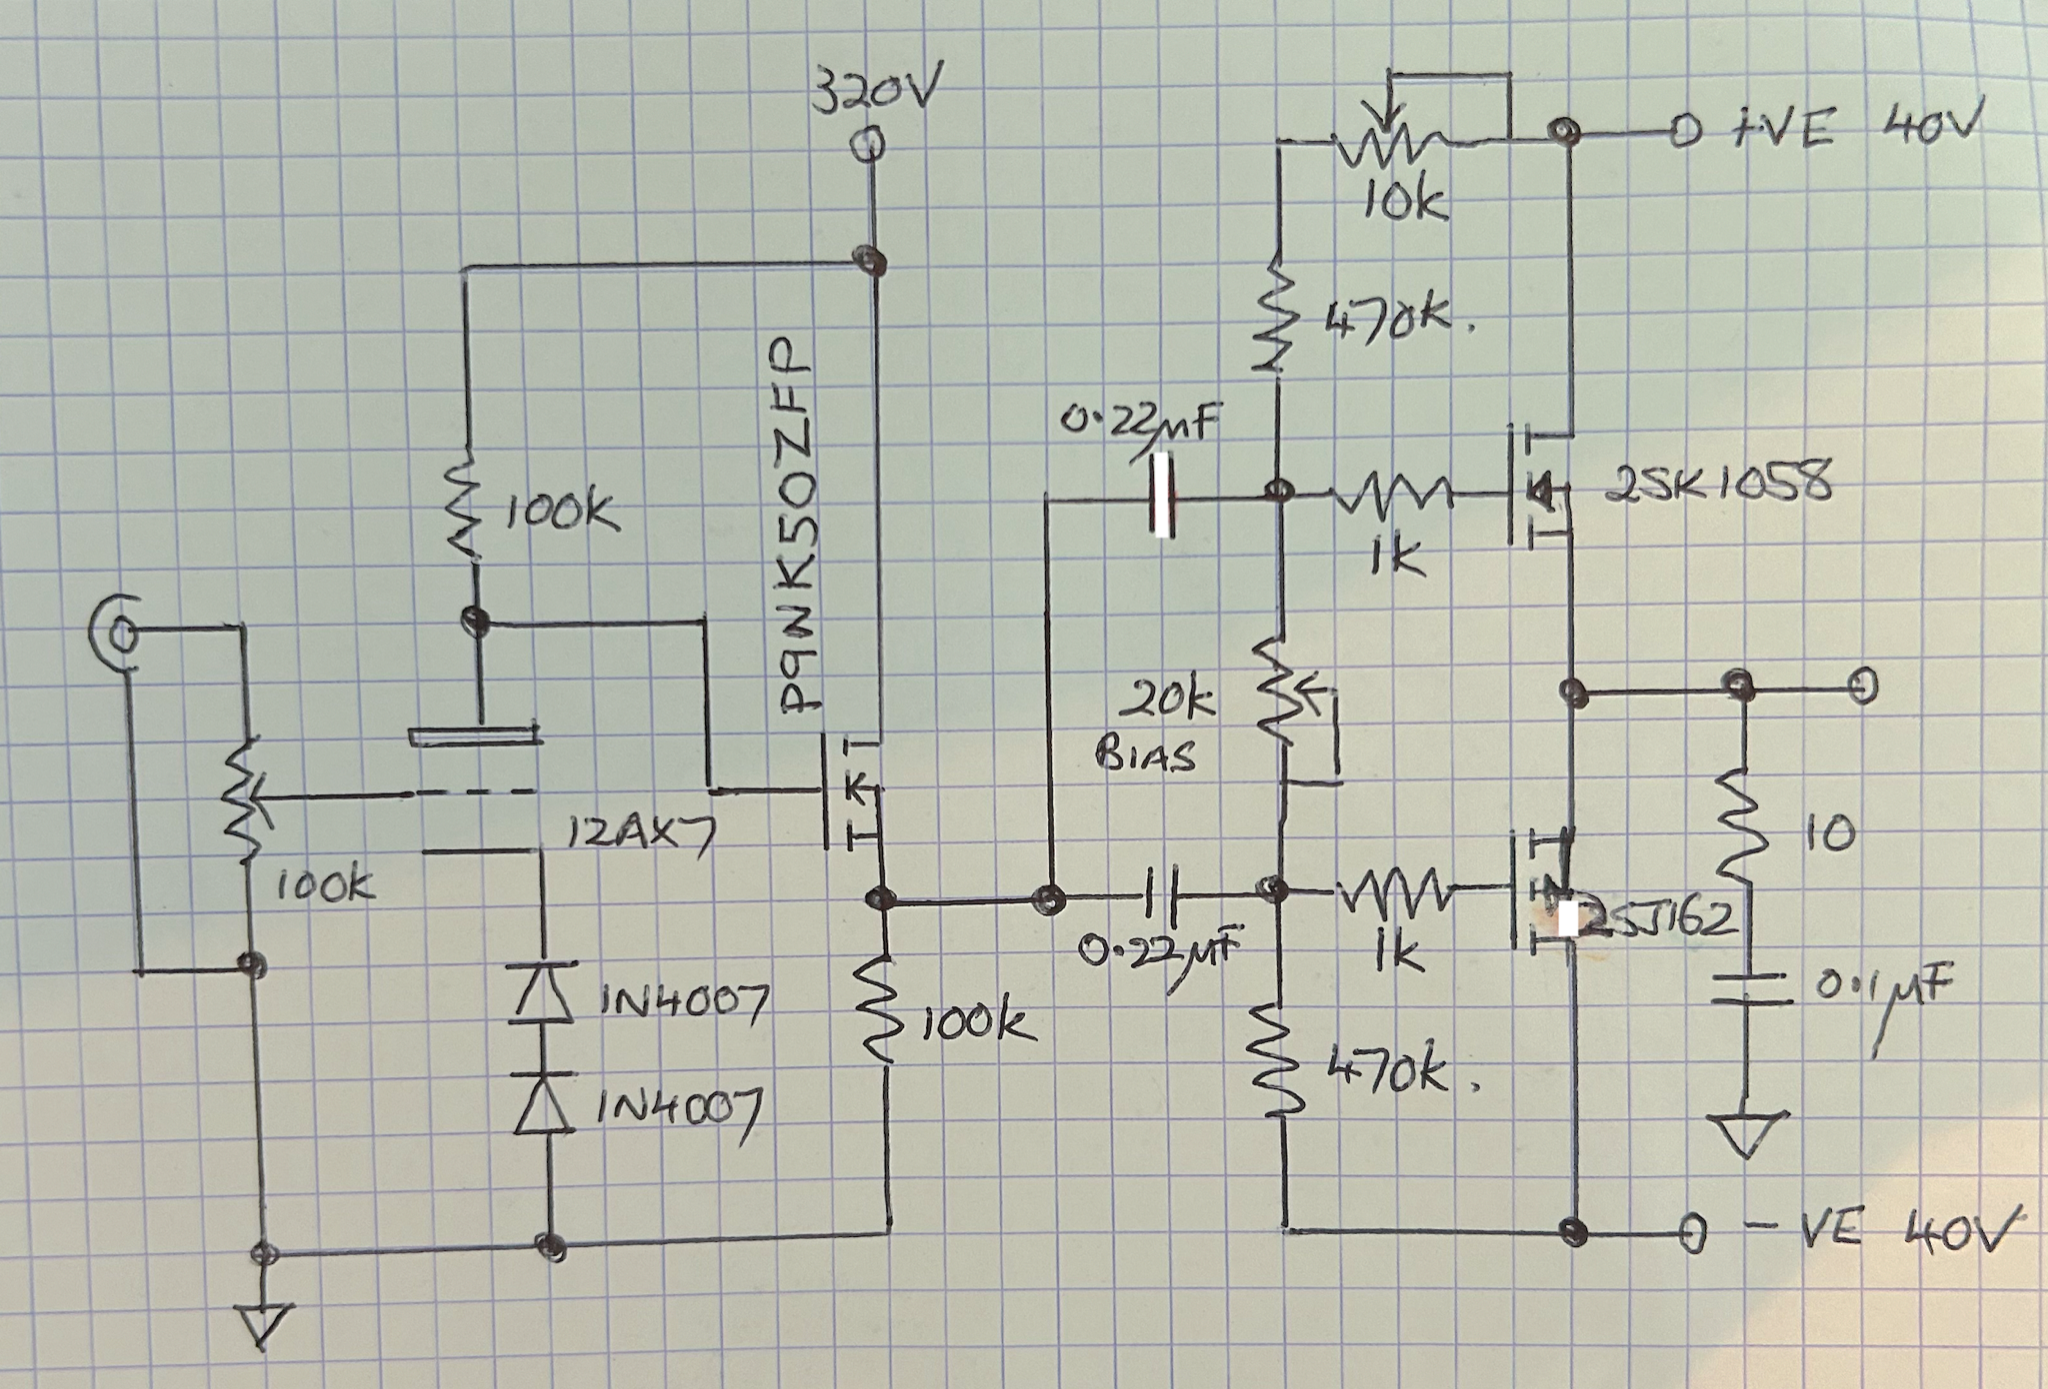 320V
+VE 40V
10k
470k.
P9NK50ZFP
0.22µF
100k
2SK1058
1k
20k
BIAS
12AX7
100k
10
2SJ162
0.22µF
1k
1N4007
100k
0.1µF
470k.
1N4007
- VE 40V